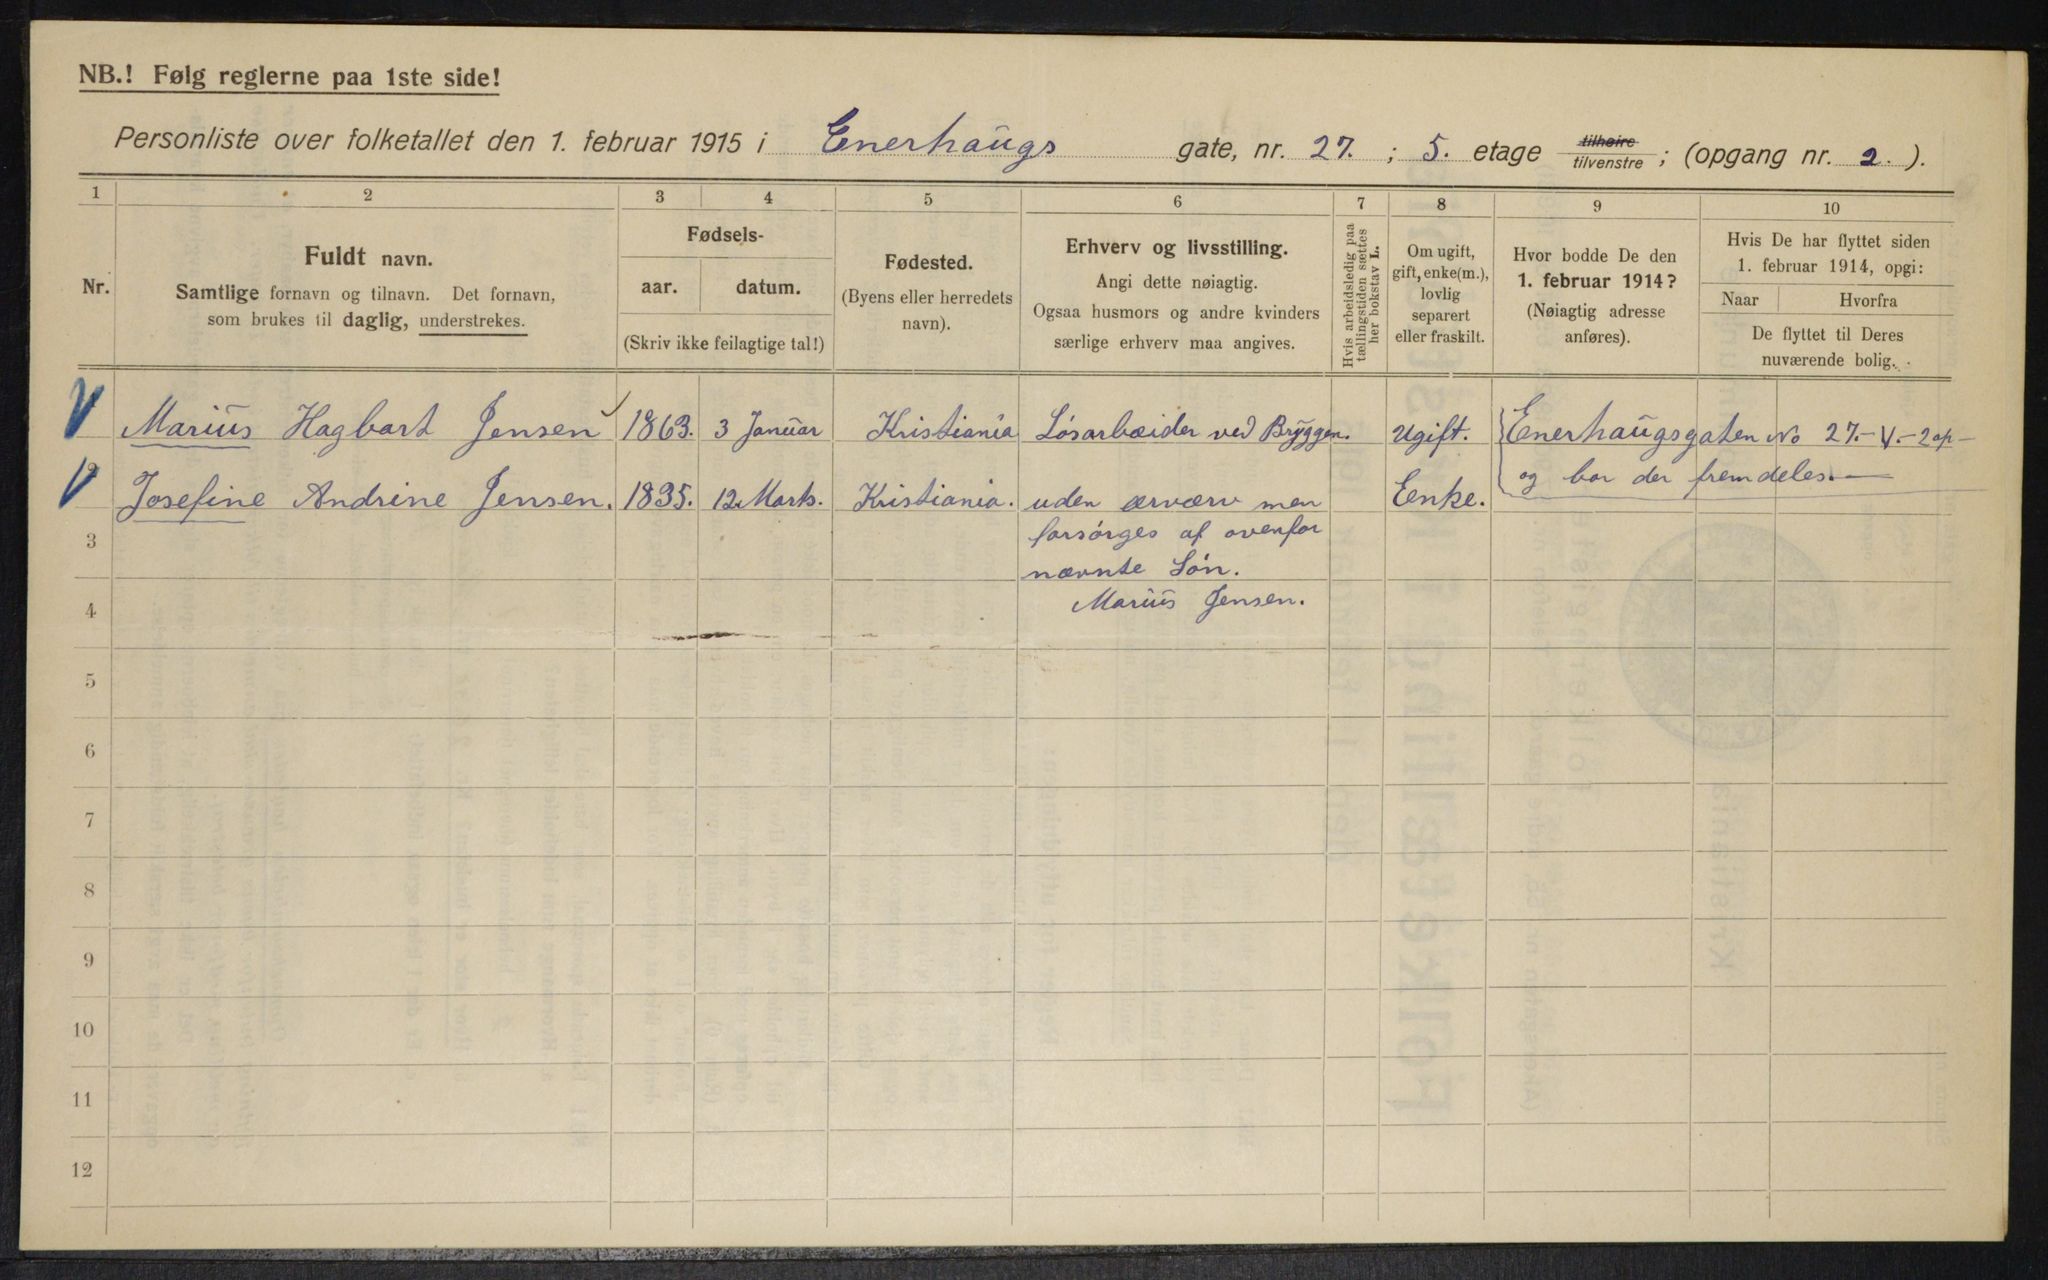 NB.! Følg reglerne paa 1ste side!
Personliste over folketallet den 1. februar 1915 i Enerhaugs gate, nr. 27. ; 5. etage tilhøire tilvenstre ; (opgang nr. 2. ).
1 2 3 4 5 6 7 8 9 10
Nr.
Fuldt navn.
Samtlige fornavn og tilnavn. Det fornavn,
som brukes til daglig, understrekes.
Fødsels-
aar. datum.
(Skriv ikke feilagtige tal!)
Fødested.
(Byens eller herredets
navn).
Erhverv og livsstilling.
Angi dette nøiagtig.
Ogsaa husmors og andre kvinders
særlige erhverv maa angives.
Hvis arbeidsledig paa
tællingstiden sættes
her bokstav L.
Om ugift,
gift, enke(m.),
lovlig
separert
eller fraskilt.
Hvor bodde De den
1. februar 1914?
(Nøiagtig adresse
anføres).
Hvis De har flyttet siden
1. februar 1914, opgi:
Naar Hvorfra
De flyttet til Deres
nuværende bolig.
Marius Hagbart Jensen 1863. 3 Januar Kristiania Løsarbæider ved Bryggen. Ugift. Enerhaugsgaten No 27.- V.- 2 op-
og bor der fremdeles.
Josefine Andrine Jensen. 1835. 12 Marts. Kristiania. uden ærværv men Eenke.
forsørges af ovenfor
nævnte Søn.
Marius Jensen.
3
4
5
6
7
8
9
10
11
12